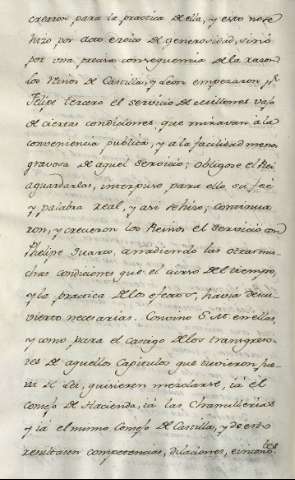 creason para la practica de ella, y esto no se
hizo por acto eroico de generosidad, sinó
por una precisa consequencia de la razon
los Reinos de Castilla, y Leon empezaron pr
Felipe tercero el servicio de millones vajo
de ciertas condiciones, que miravan á la
conveniencia publica, y a la facilidad menos
gravosa de aquel servicio; obligose el Rei
aguardarlas, interpuso para ello su fee
y palabra real, y asi se hizo; continua
ron, y crecieron los Reinos el servicio con
Phelipe Quarto, añadiendo las otras mu
chas condiciones que el curso del tiempo,
y la practica de los efectos, havia descu
vierto necesarias. Convino S.M. en ellas,
y como para el castigo de los transgreso
res de aquellos Capitulos que tuvieron fuer
za de Lei, quisiesen mezclarse, iá el
Consejo de Hacienda, iá las Chancillerias
y iá el mismo Consejo de Castilla, y de esto
resultasen competencias, dilaciones,
les